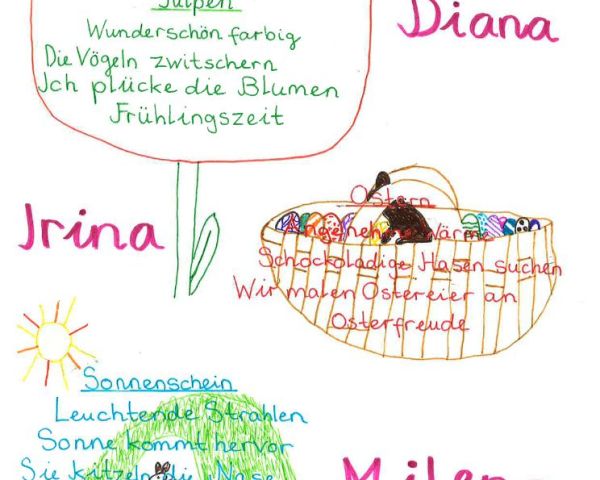 Tulpen
Wunderschön farbig
Die Vögeln zwitschern
Ich plücke die Blumen
Frühlingszeit
Diana
Irina
Ostern
Angenehme Wärme
Schockoladige Hasen suchen
Wir malen Ostereier an
Osterfreude
Sonnenschein
Leuchtende Strahlen
Sonne kommt hervor
Sie kitzeln die Nase